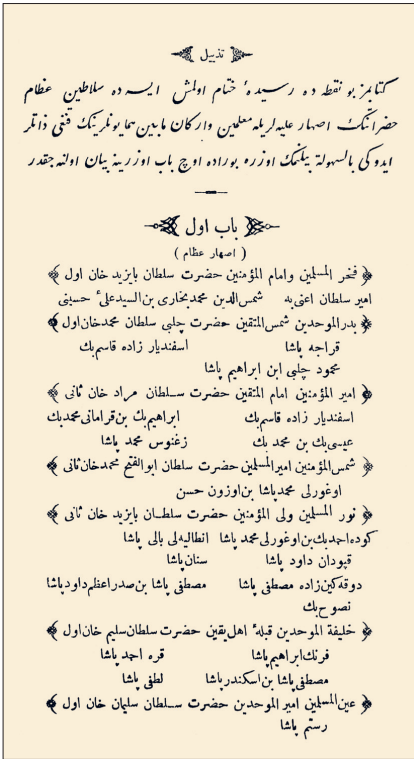 تذييل
كتابمز بو نقطه ده رسيدهٔ ختام اولمش ايسه ده سلاطين عظام
حضراتنك اصهار عليه لريله معلمين واركان مابين همايونلرينك قنغى ذاتلر
ايدوكى بالسهولة بيلنمك اوزره بوراده اوچ باب اوزرينه بيان اولنه جقدر
باب اول
( اصهار عظام )
﴿ فخر المسلمين وامام المؤمنين حضرت سلطان بايزيد خان اول ﴾
امير سلطان اعنى به شمس الدين محمد بخارى بن السيد على ٔ حسينى
﴿ بدر الموحدين شمس المتقين حضرت چلبى سلطان محمد خان اول ﴾
قراجه پاشا اسفنديار زاده قاسم بك
محمود چلبى ابن ابراهيم پاشا
﴿ امير المؤمنين امام المتقين حضرت سـلطان مراد خان ثانى ﴾
اسفنديار زاده قاسم بك ابراهيم بك بن قرامانى محمد بك
عيسى بك بن محمد بك زغنوس محمد پاشا
﴿ شمس المؤمنين امير المسلمين حضرت سلطان ابو الفتح محمد خان ثانى ﴾
اوغورلى محمد پاشا بن اوزون حسن
﴿ نور المسلمين ولى المؤمنين حضرت سلطـان بايزيد خان ثانى ﴾
كوده احمد بك بن اوغورلى محمد پاشا انطاليه لى بالى پاشا
قپودان داود پاشا سنان پاشا
دوقه كين زاده مصطفى پاشا مصطفى پاشا بن صدر اعظم داود پاشا
نصوح بك
﴿ خليفة الموحدين قبلهٔ اهل يقين حضرت سلطان سليم خان اول ﴾
فرنك ابراهيم پاشا قره احمد پاشا
مصطفى پاشا بن اسكندر پاشا لطفى پاشا
﴿ عين المسلمين امير الموحدين حضرت سـلطان سليمان خان اول ﴾
رستم پاشا